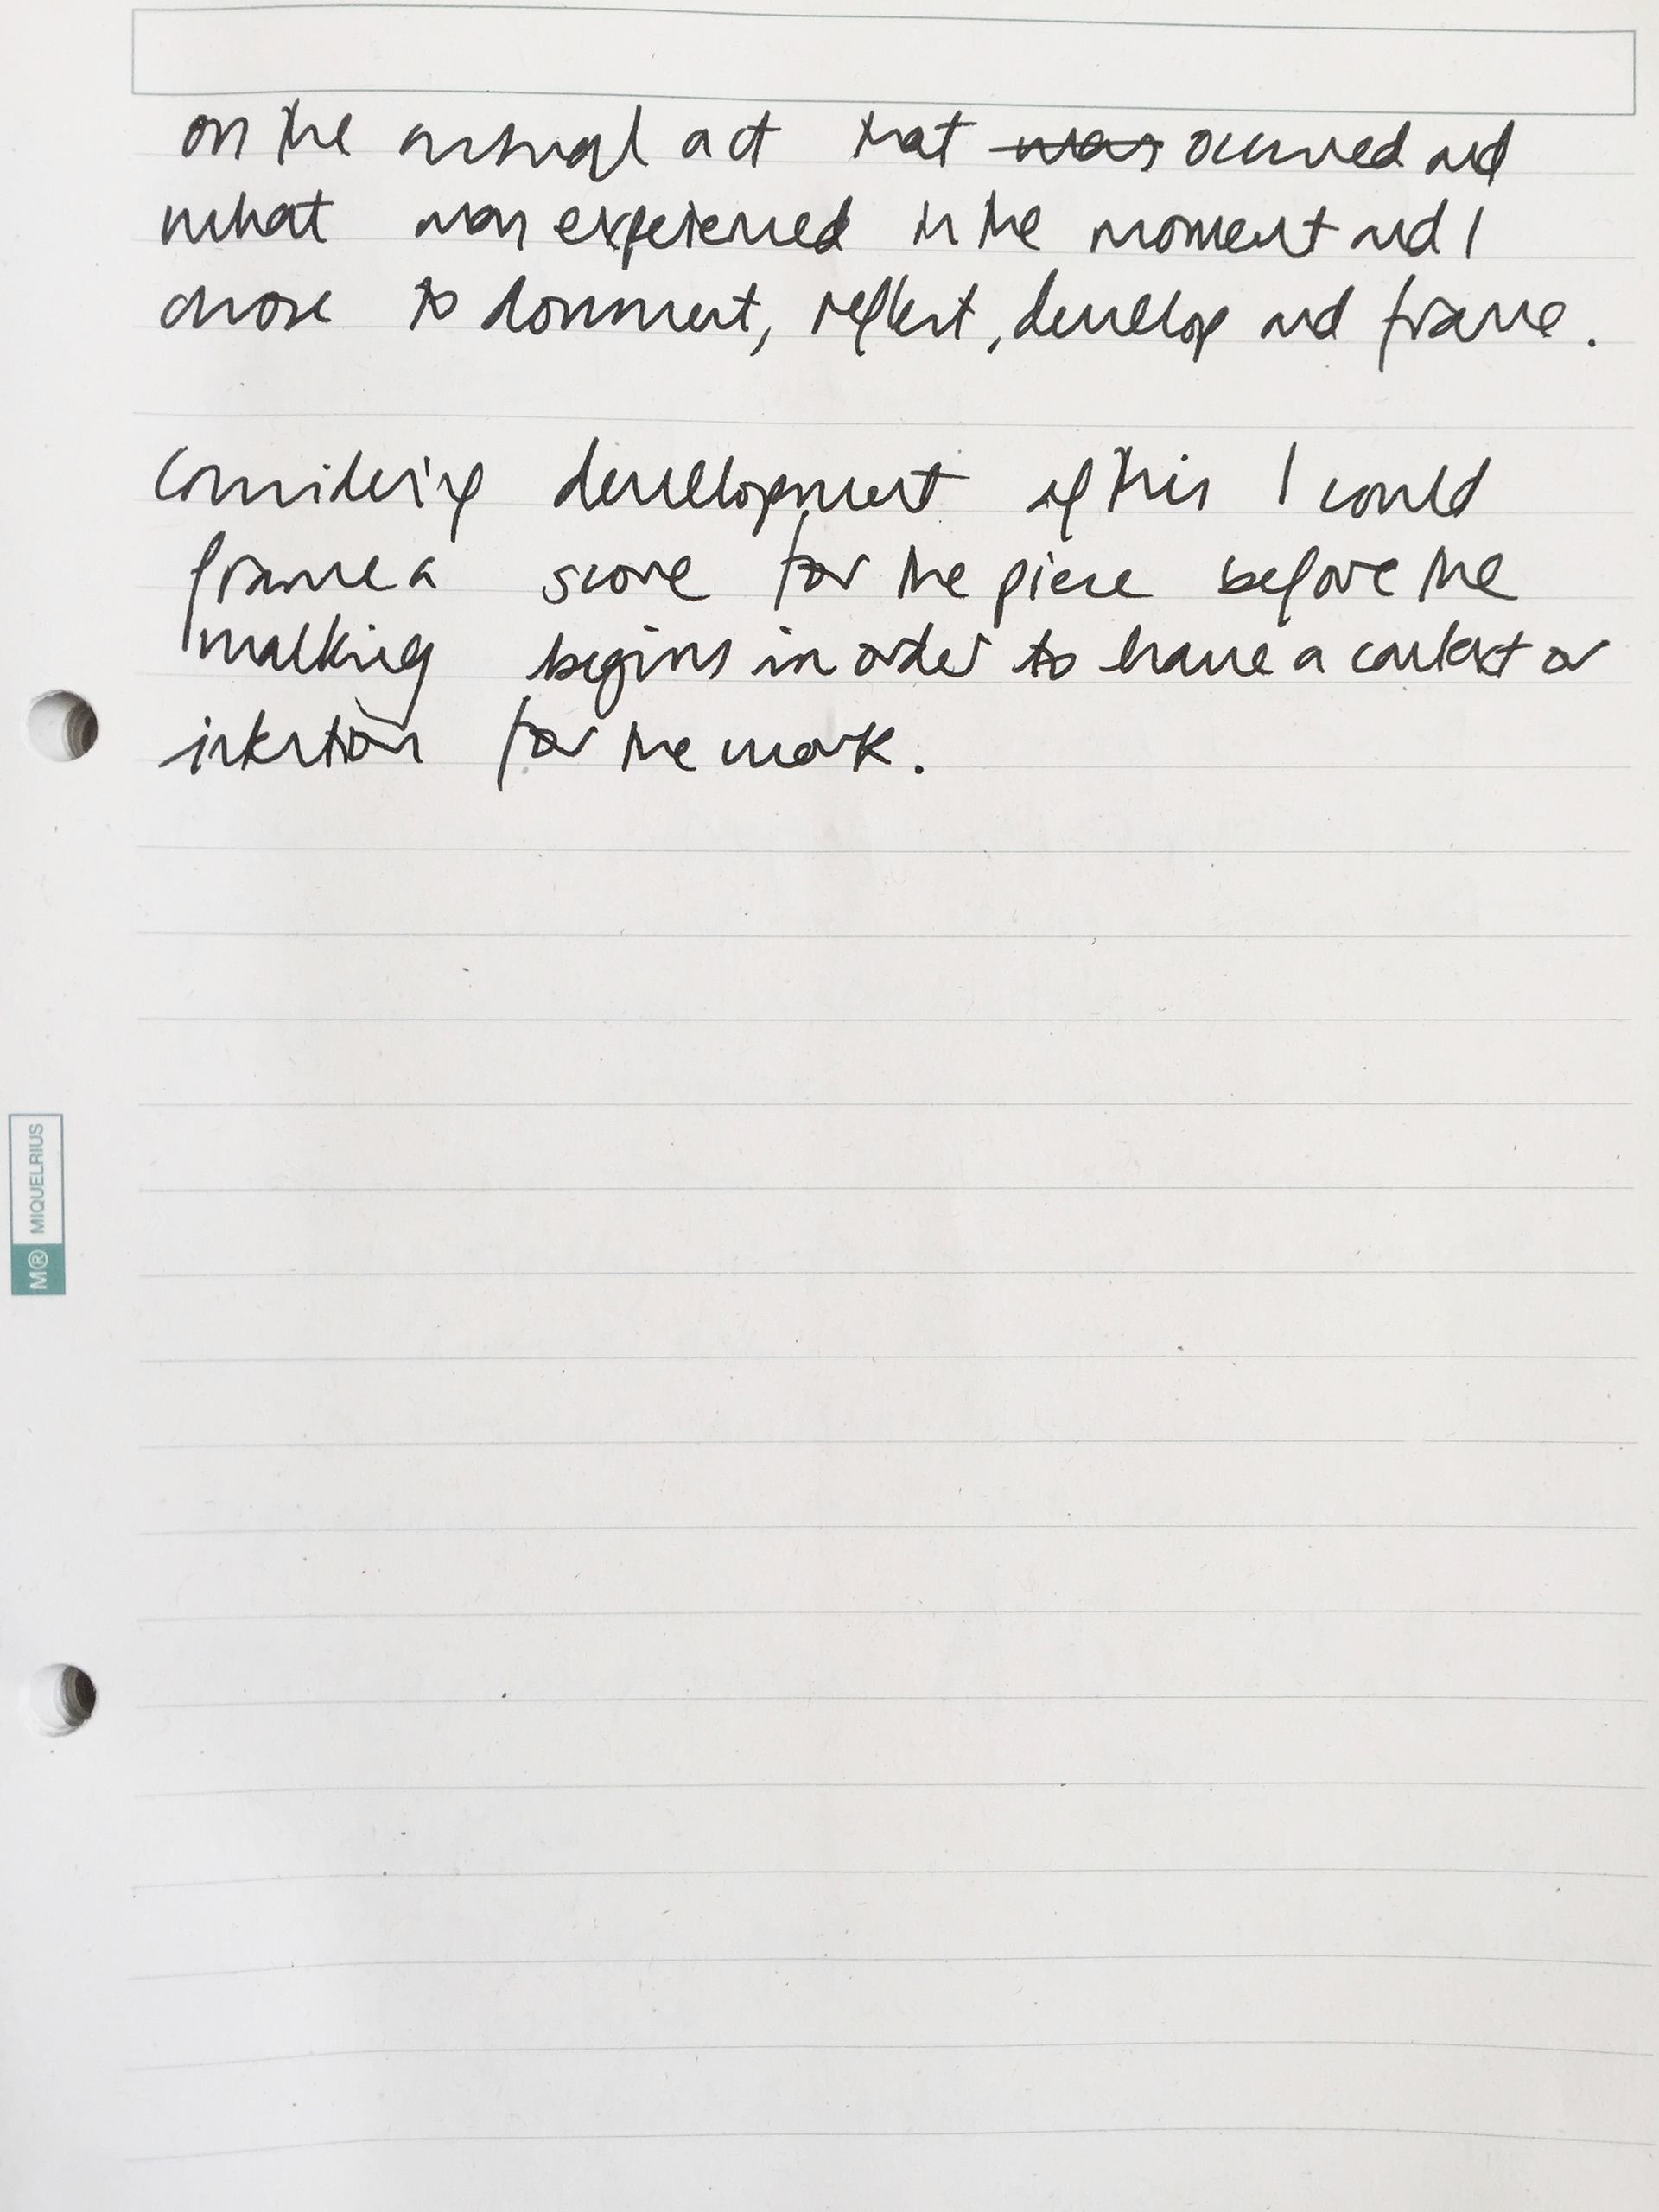 on the actual act that was occurred and
what was experienced in the moment and I
chose to document, reflect, develop and frame.
Considering development of this I could
frame a score for the piece before the
walking begins in order to have a context or
intention for the work.
M® MIQUELRIUS